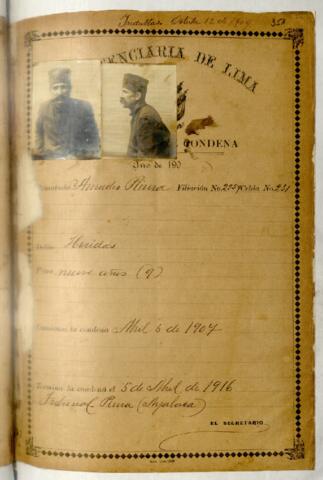 Indultado Octubre 12 de 1909 353
ENCIARIA DE LIMA
CONDENA
de 190
Amadeo Filiación No. Celda No. 231
Delito Heridas
Pena nueve años (9)
Comienza la condena Abril 5 de 1907
Termina la condena el 5 de Abril de 1916
Tribunal Piura (Ayabaca)
EL SECRETARIO